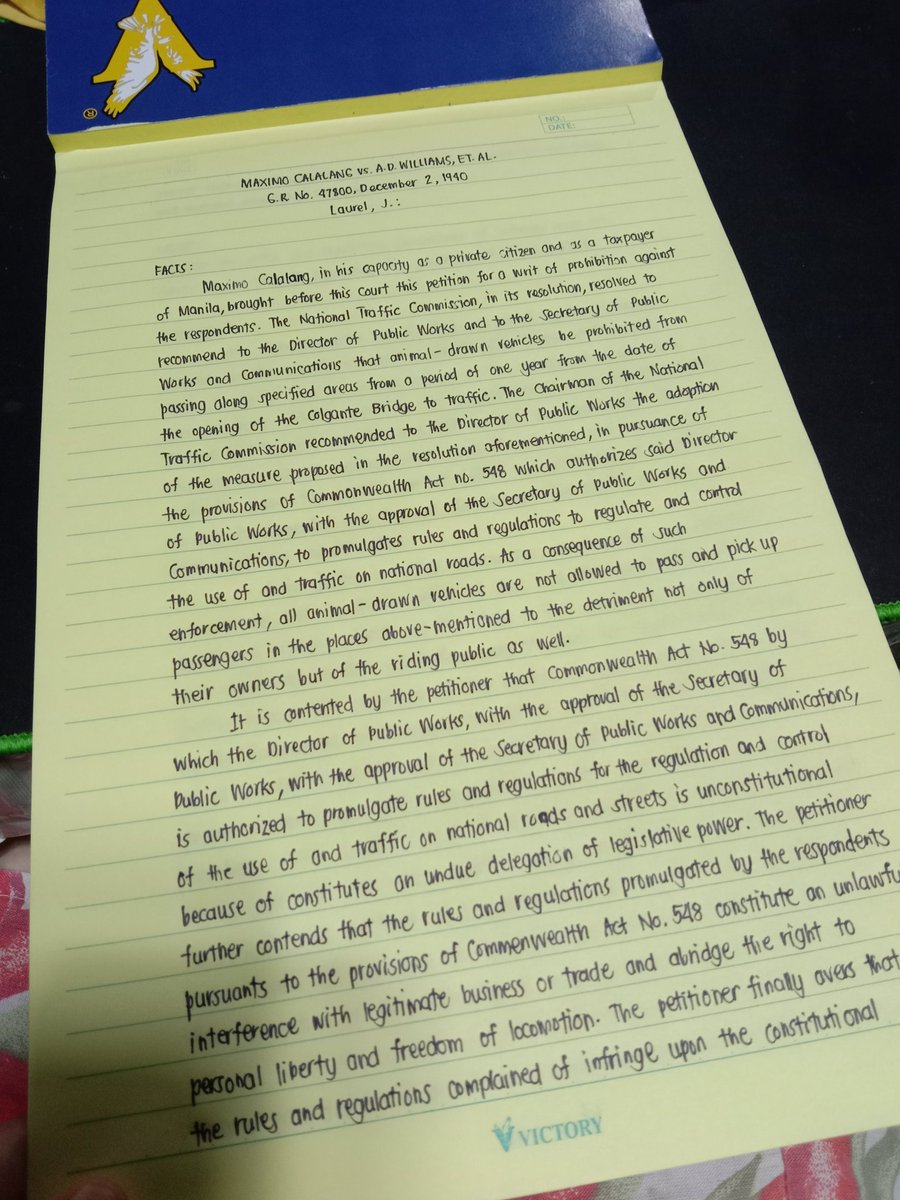 ®
NO.:
DATE:
MAXIMO CALALANG vs. A.D. WILLIAMS, ET. AL.
G.R No. 47800, December 2, 1940
Laurel, J.:
FACTS:
Maximo Calalang, in his capacity as a private citizen and as a taxpayer
of Manila, brought before this Court this petition for a writ of prohibition against
the respondents. The National Traffic Commission, in its resolution, resolved to
recommend to the Director of Public Works and to the Secretary of Public
Works and Communications that animal-drawn vehicles be prohibited from
passing along specified areas from a period of one year from the date of
the opening of the Colgante Bridge to traffic. The Chairman of the National
Traffic Commission recommended to the Director of Public Works the adoption
of the measure proposed in the resolution aforementioned, in pursuance of
the provisions of Commonwealth Act no. 548 which authorizes said Director
of Public Works, with the approval of the Secretary of Public Works and
Communications, to promulgates rules and regulations to regulate and control
the use of and traffic on national roads. As a consequence of such
enforcement, all animal-drawn vehicles are not allowed to pass and pick up
passengers in the places above-mentioned to the detriment not only of
their owners but of the riding public as well.
It is contented by the petitioner that Commonwealth Act No. 548 by
which the Director of Public Works, with the approval of the Secretary of
Public Works, with the approval of the Secretary of Public Works and Communications,
is authorized to promulgate rules and regulations for the regulation and control
of the use of and traffic on national roads and streets is unconstitutional
because of constitutes an undue delegation of legislative power. The petitioner
further contends that the rules and regulations promulgated by the respondents
pursuants to the provisions of Commenwealth Act No. 548 constitute an unlawfu
interference with legitimate business or trade and abridge the right to
personal liberty and freedom of locomotion. The petitioner finally avers that
the rules and regulations complained of infringe upon the constitutional
VICTORY